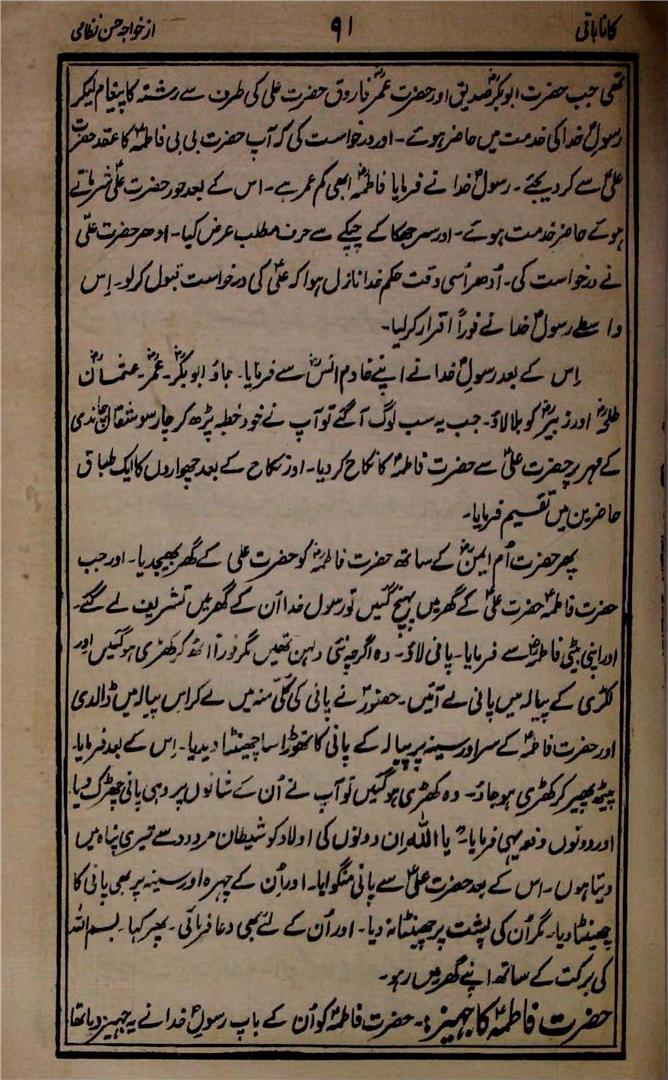 کانا باتی
۹۱
از خواجہ حسن نظامی
تھی جب حضرت ابوبکرؓ صدیق اور حضرت عمرؓ فاروق حضرت علی کی طرف سے رشتہ کا پیغام لیکر
رسولؐ خدا کی خدمت میں حاضر ہوئے۔ اور درخواست کی کہ آپ حضرت بی بی فاطمہؑ کا عقد حضرت
علیؑ سے کر دیجئے۔ رسولؐ خدا نے فرمایا فاطمہؓ ابھی کم عمر ہے۔ اس کے بعد خود حضرت علیؑ شرماتے
ہوئے حاضر خدمت ہوئے۔ اور سر جھکا کے چپکے سے حرف مطلب عرض کیا۔ ادھر حضرت علیؑ
نے درخواست کی۔ اُدھر اُسی وقت حکم خدا نازل ہوا کہ علیؑ کی درخواست قبول کر لو۔ اِس
واسطے رسولؐ خدا نے فوراً اقرار کر لیا۔
اِس کے بعد رسولؐ خدا نے اپنے خادم انسؓ سے فرمایا۔ جاؤ ابوبکرؓ۔ عمرؓ۔ عثمانؓ
طلحہؓ اور زبیرؓ کو بلا لاؤ۔ جب یہ سب لوگ آ گئے تو آپ نے خود خطبہ پڑھ کر چار سو مثقال چاندی
کے مہر پر حضرت علیؑ سے حضرت فاطمہؑ کا نکاح کر دیا۔ اور نکاح کے بعد چھواروں کا ایک طباق
حاضرین میں تقسیم فرمایا۔
پھر حضرت اُم ایمنؓ کے ساتھ حضرت فاطمہؑ کو حضرت علی کے گھر بھیجدیا۔ اور جب
حضرت فاطمہؑ حضرت علیؑ کے گھر میں پہنچ گئیں تو رسول خدا اُن کے گھر میں تشریف لے گئے۔
اور اپنی بیٹی فاطمہؑ سے فرمایا۔ پانی لاؤ۔ وہ اگرچہ نئی دلہن تھیں مگر فوراً اُٹھ کر کھڑی ہو گئیں اور
لکڑی کے پیالہ میں پانی لے آئیں۔ حضورؐ نے پانی کی کُلّی منہ میں لے کر اس پیالہ میں ڈالدی
اور حضرت فاطمہؑ کے سر اور سینہ پر پیالہ کے پانی کا تھوڑا سا چھینٹا دیدیا۔ اِس کے بعد فرمایا۔
پیٹھ پھیر کر کھڑی ہو جاؤ۔ وہ کھڑی ہو گئیں تو آپ نے اُن کے شانوں پر وہی پانی چھڑک دیا
اور دونوں دفعہ یہی فرمایا۔ یا اللہ اِن دونوں کی اولاد کو شیطان مردود سے تیری پناہ میں
دیتا ہوں۔ اس کے بعد حضرت علیؑ سے پانی منگوایا۔ اور اُن کے چہرہ اور سینہ پر بھی پانی کا
چھینٹا دیا۔ مگر اُن کی پشت پر چھینٹا نہ دیا۔ اور اُن کے لئے بھی دعا فرمائی۔ پھر کہا۔ بسم اللہ
کی برکت کے ساتھ اپنے گھر میں رہو۔
حضرت فاطمہؑ کا جہیز:۔ حضرت فاطمہؑ کو اُن کے باپ رسولؐ خدا نے یہ جہیز دیا تھا